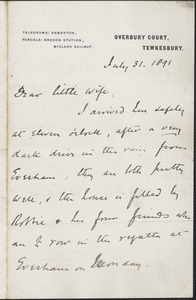 TELEGRAMS: KEMERTON.
PARCELS: BREDON STATION,
MIDLAND RAILWAY.
OVERBURY COURT,
TEWKESBURY.
July 31. 1891
Dear little Wife,
I arrived here safely
at eleven o'clock, after a very
dark drive in the rain from
Evesham; they are both pretty
well, & the house is filled by
Robbie & his four friends who
are to row in the regatta at
Evesham on Monday.